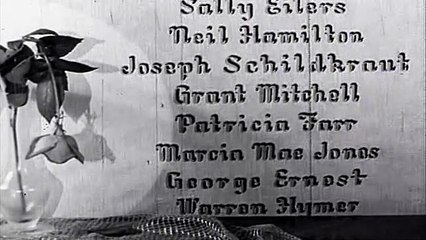 Sally Eilers
Neil Hamilton
Joseph Schildkraut
Grant Mitchell
Patricia Farr
Marcia Mae Jones
George Ernest
Warren Hymer